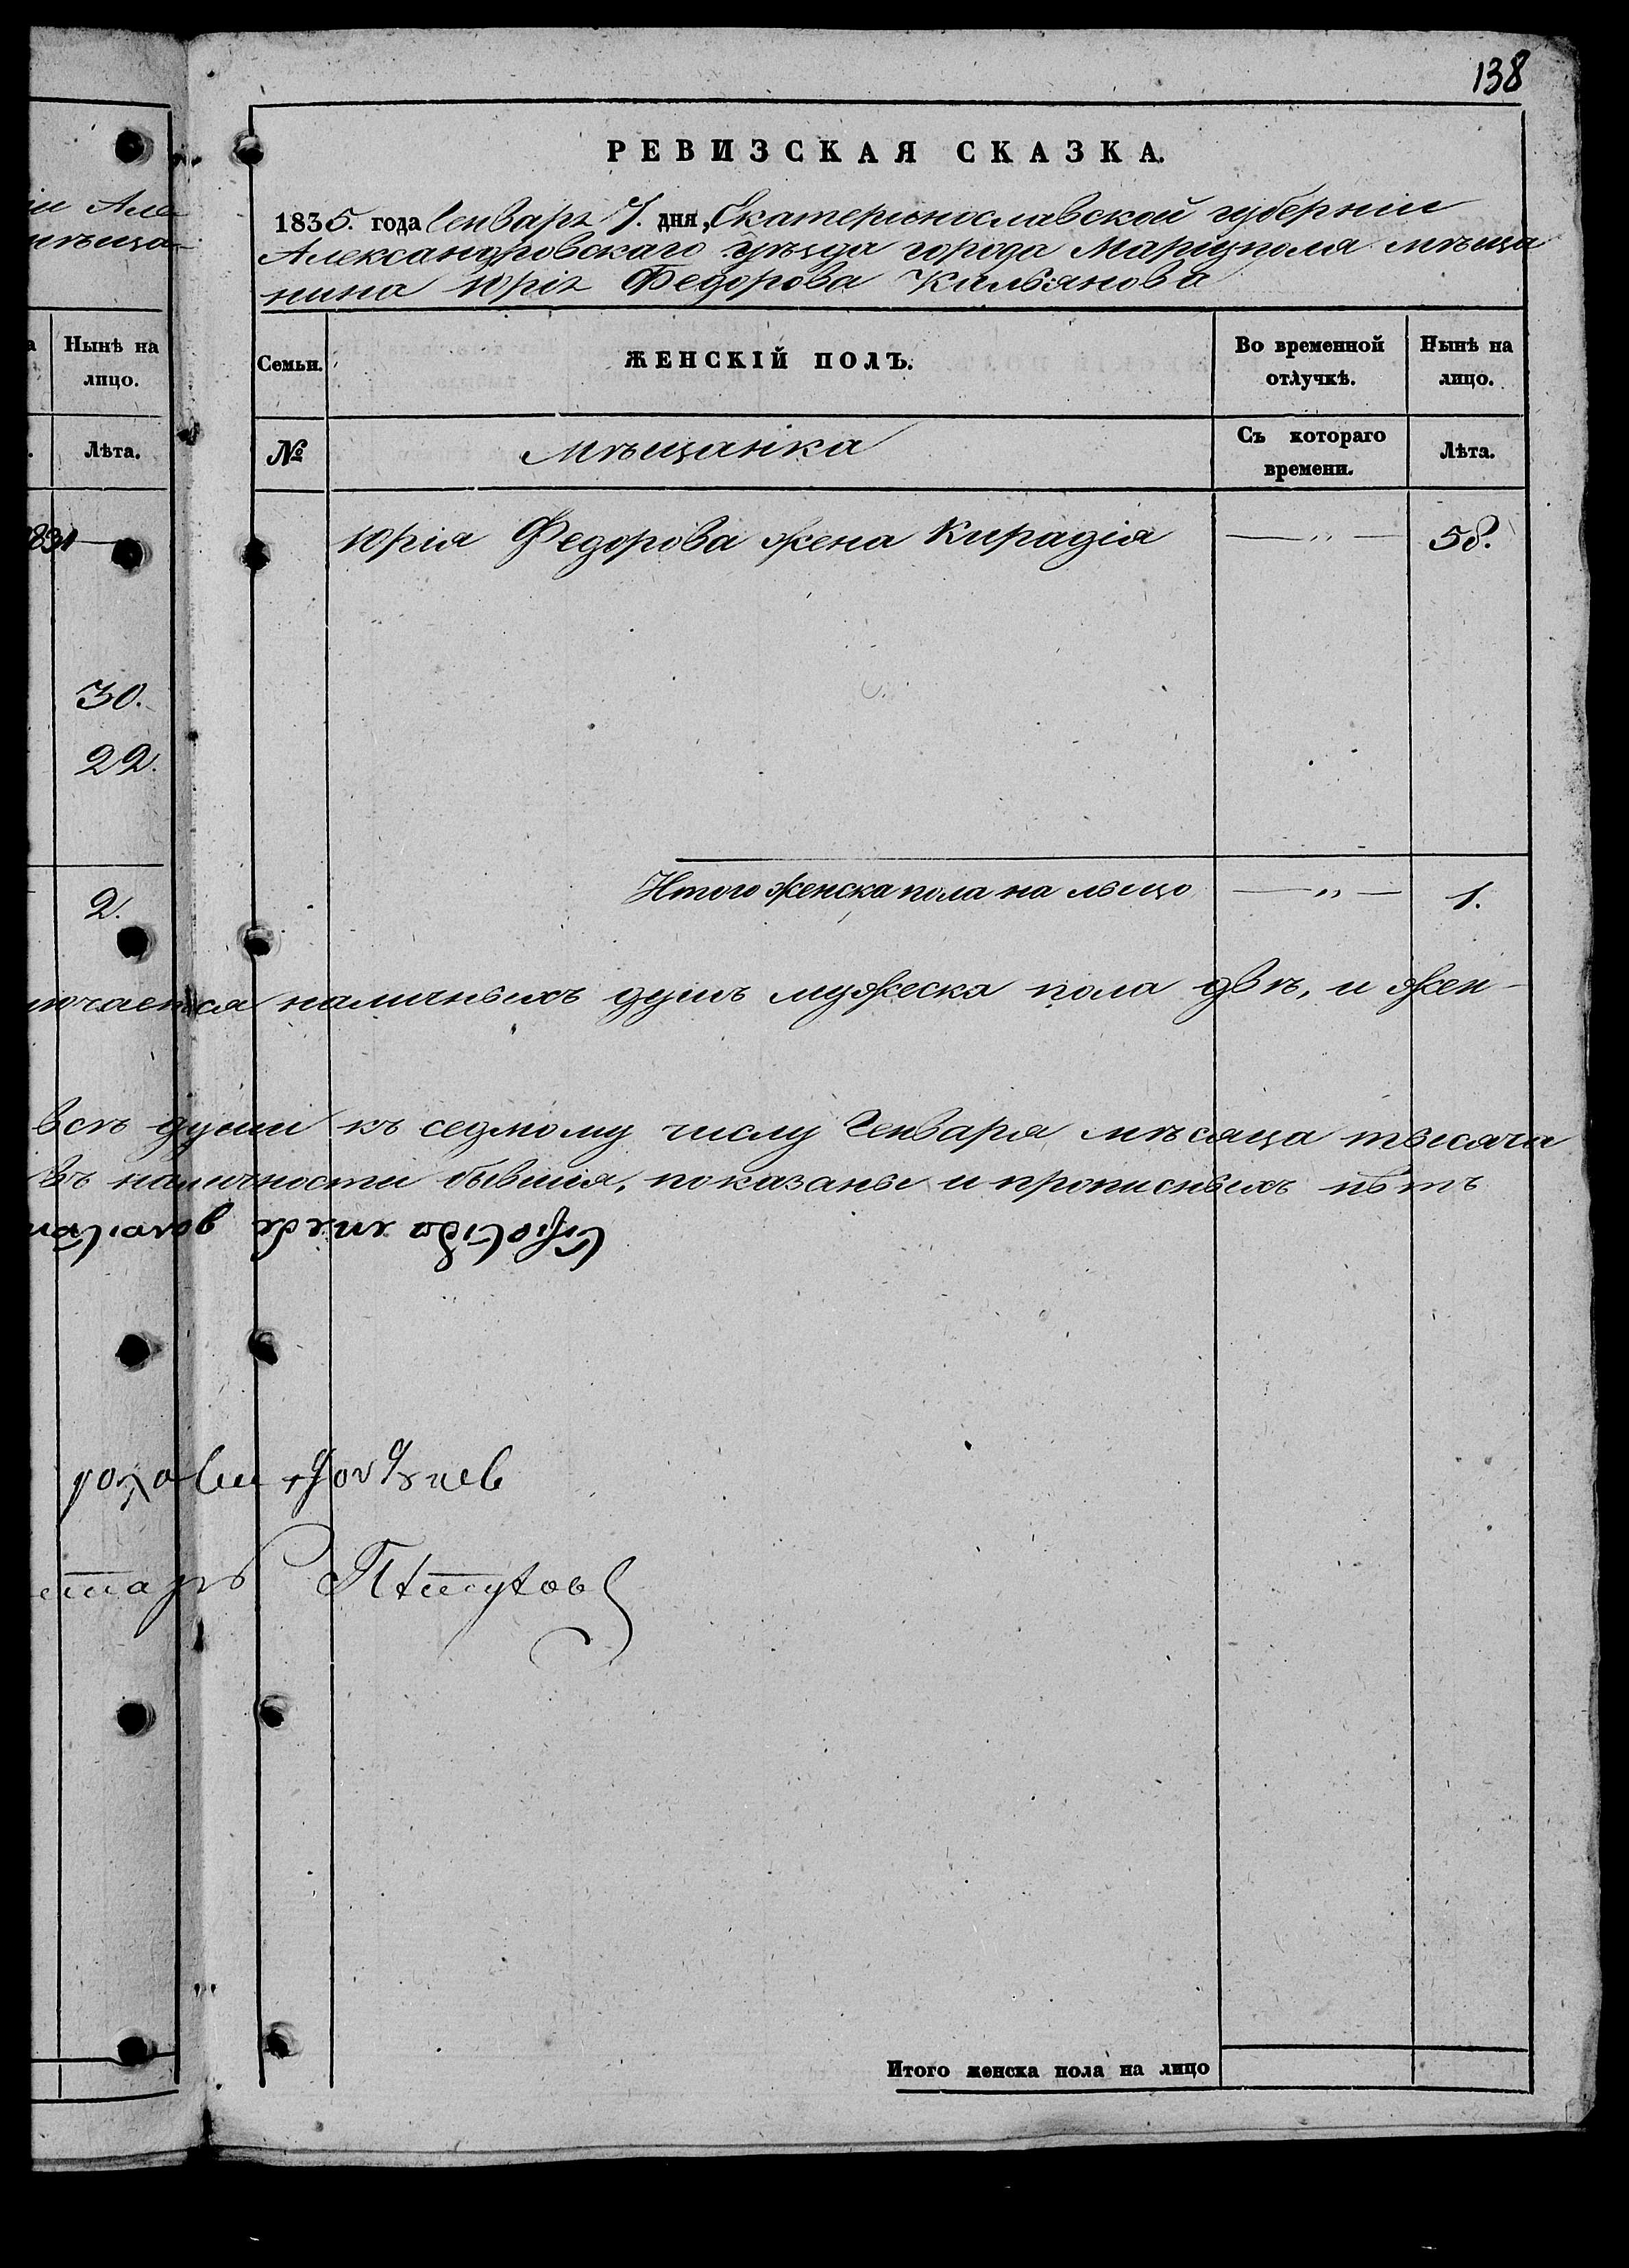 138
РЕВИЗСКАЯ СКАЗКА.
1835. года Генваря 7. дня, Екатеринославской губерніи
Александровскаго уѣзда города Маріуполя мѣща
нина Юрія Федорова Кальянова
Семьи.
ЖЕНСКІЙ ПОЛЪ.
Во временной отлучкѣ.
Нынѣ на лицо.
№
Мѣщанка
Съ котораго времени.
Лѣта.
Юрія Федорова жена Кирадія — „ — 58.
Итого женска пола на лицо — „ — 1.
ючается наличныхъ душъ мужеска пола двѣ, и жен-
всѣ души къ седмому числу Генваря мѣсяца тысяча
въ наличности бывшія, показаны и прописныхъ нѣтъ
Итого женска пола на лицо
іи Але
мѣща
Нынѣ на лицо.
Лѣта.
1831
30.
22.
2.